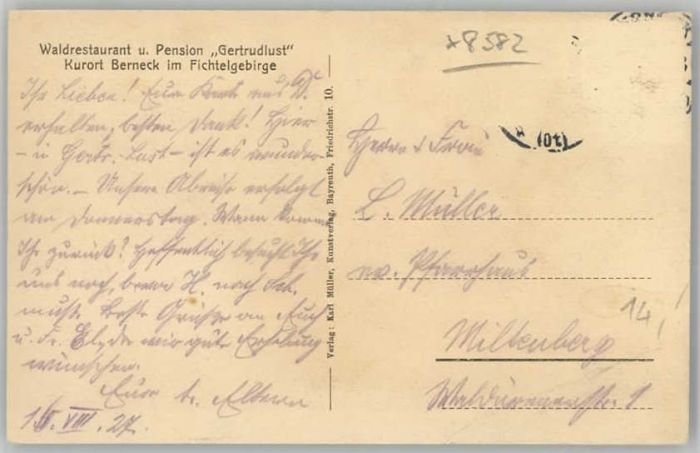 Waldrestaurant u. Pension „Gertrudlust"
Kurort Berneck im Fichtelgebirge
*8582
Ihr Lieben! Eure Karte aus
erhalten, besten Dank! Hier
- in Gertr.-Lust - ist es wunder
schön. - Unsere Abreise erfolgt
am Donnerstag. Wann kommt
Ihr zurück? Hoffentlich besucht Ihr
uns noch, bevor H. nach
muß. Beste Grüße an Euch
u. Fr. gute Erholung
wünschen.
Eure tr. Eltern
VIII. 27.
Verlag: Karl Müller, Kunstverlag, Bayreuth, Friedrichstr. 10.
Herrn & Frau
L. Müller
ev. Pfarrhaus
Miltenberg
Walldürnerstr. 1
14